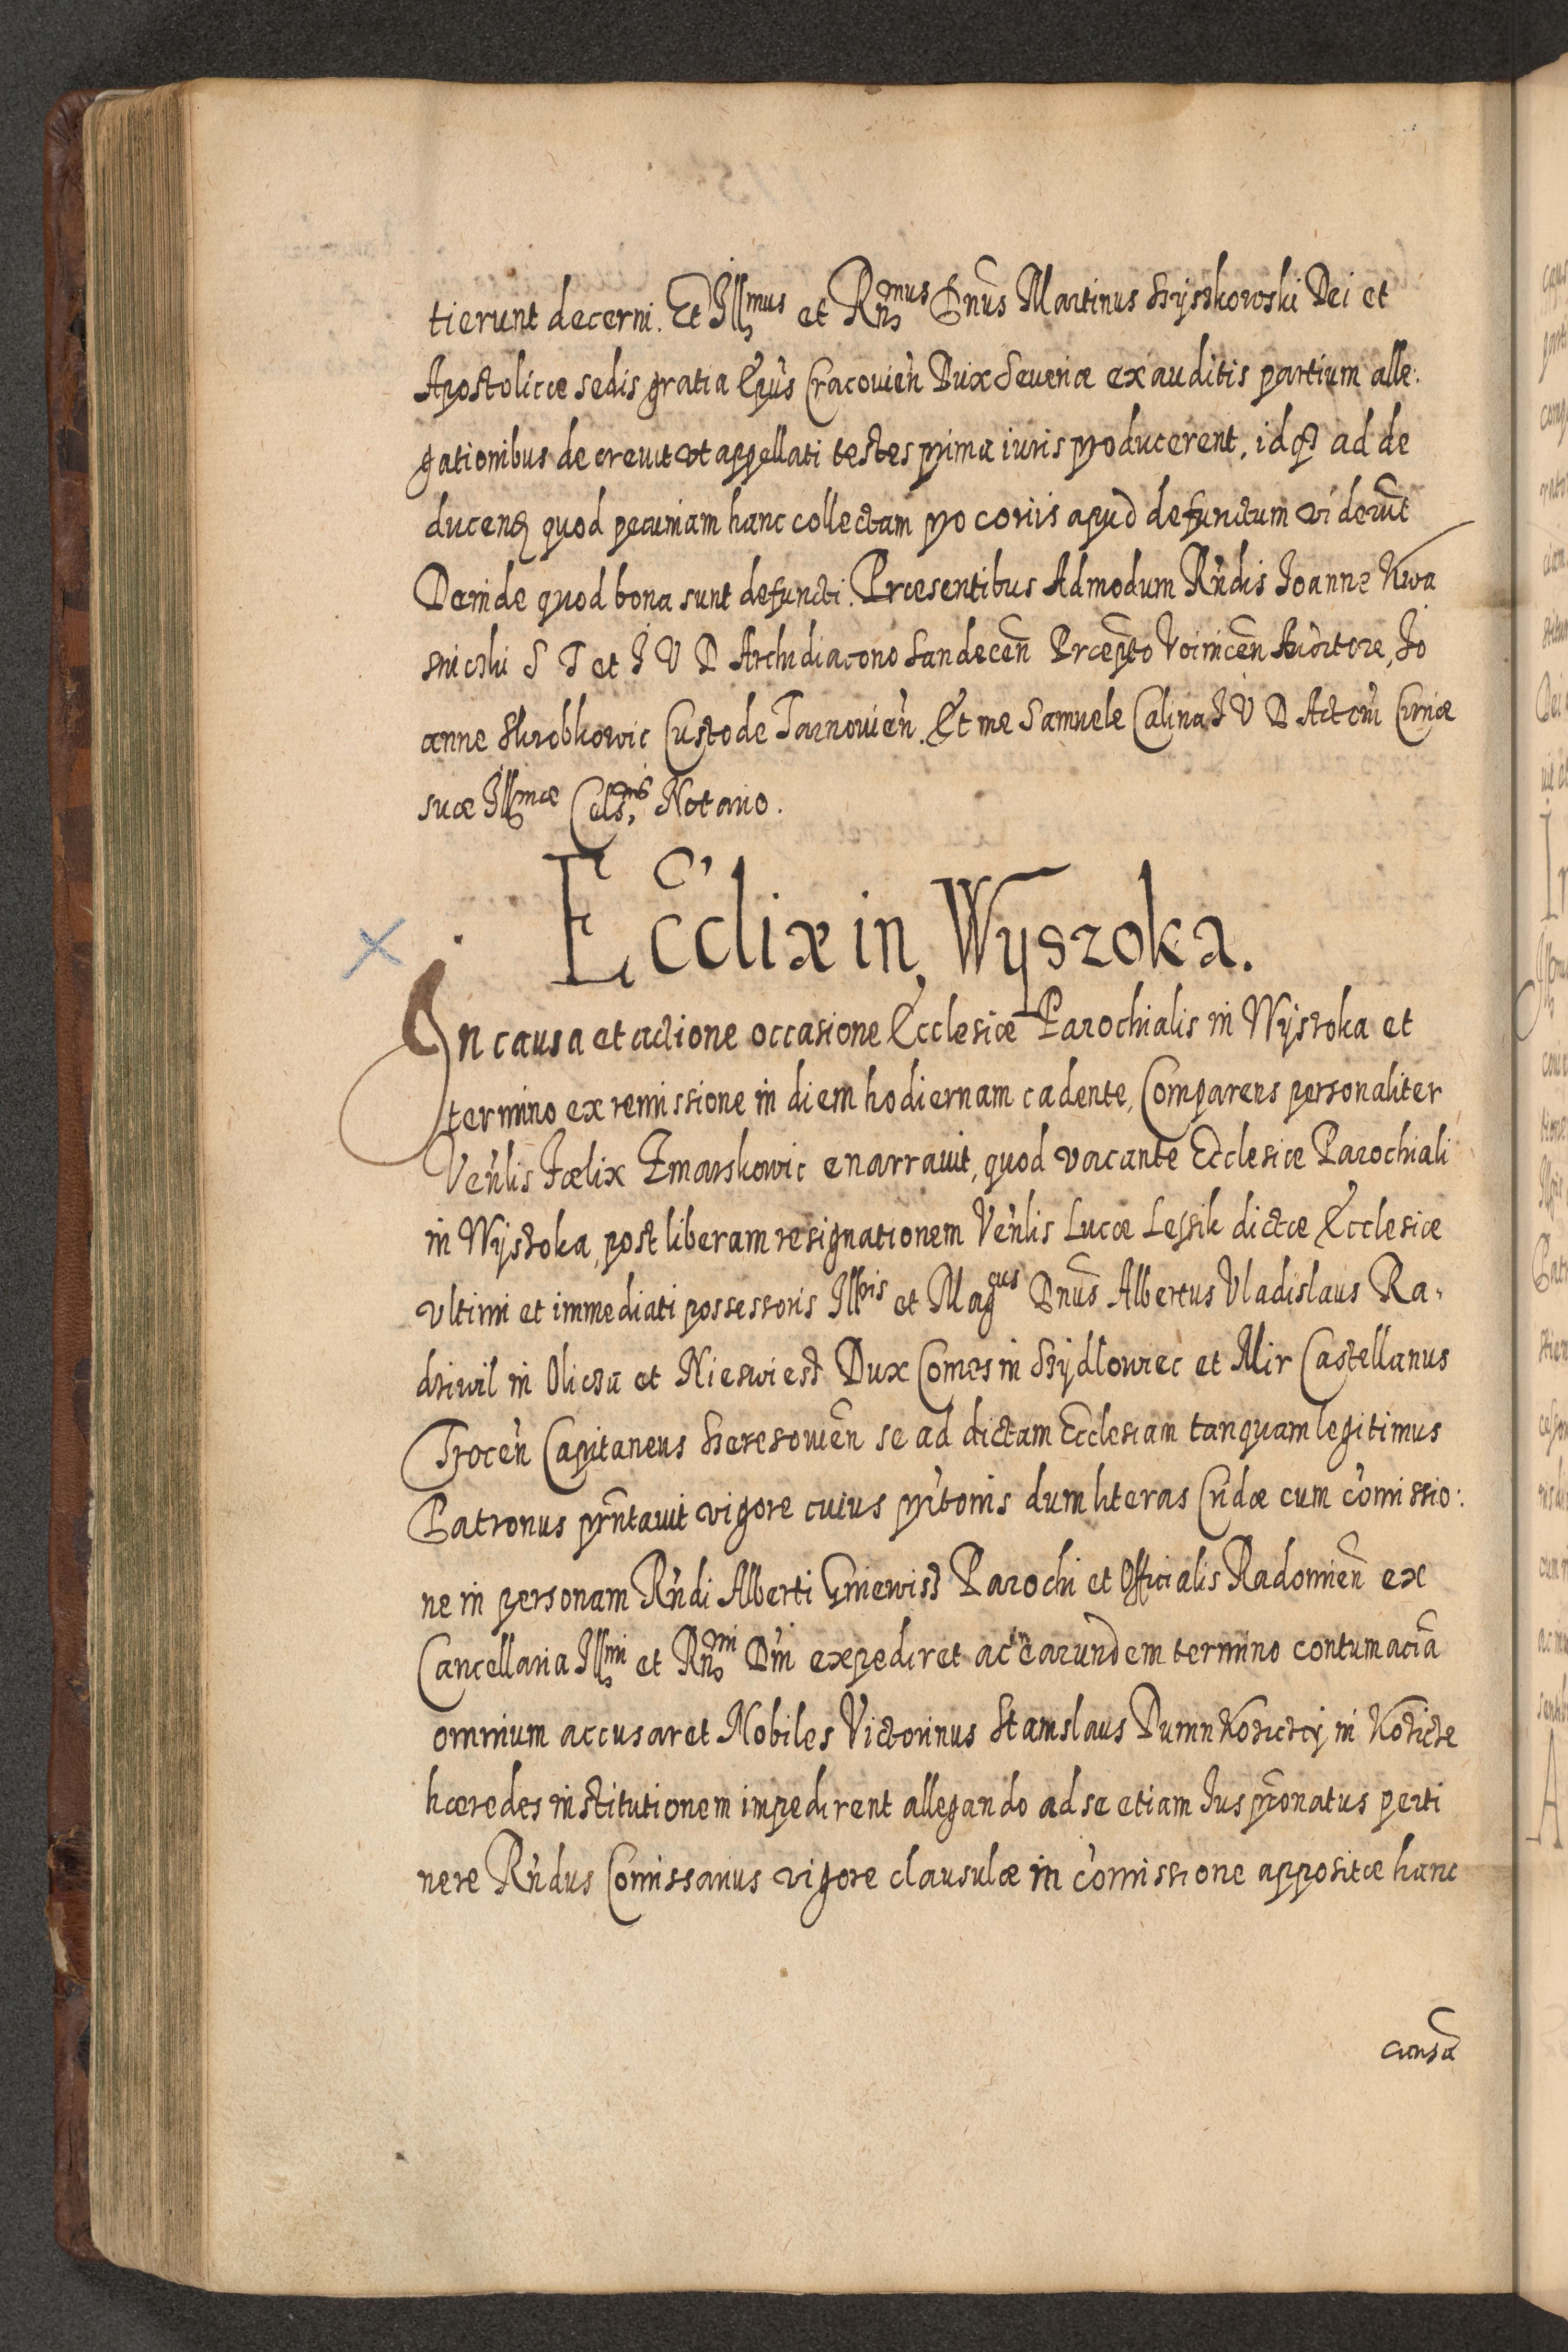 tierunt decerni. Et Illmus et Rndmus Dnus Martinus Szyszkowski Dei et
Apostolicæ sedis gratia Epus Cracouien Dux Seueriæ exauditis partium alle:
gationibus decreuit vt appellati testes prima iuris producerent, idq ad de
ducend quod pecuniam hanc collectam pro coriis apud defunctum viderūt
Deinde quod bona sunt defuncti. Præsentibus Admodum Rndis Joanne Kwa
śnicki S T et I V D Archidiacono Sandecen Præpto Voinicen Auditore, Jo
anne Skrobkowic Custode Tarnouien. Et me Samuele Calina I V D Actorū Curiæ
suæ Illmæ Celsnis Notario.
Ecclix in Wyszoka.
In causa et actione occasione Ecclesiæ Parochialis in Wyszoka et
termino ex remissione in diem hodiernam cadente, Comparens personaliter
Venlis Fælix Zmarskowic enarrauit, quod vacante Ecclesiæ Parochiali
in Wyszoka, post liberam resignationem Venlis Lucæ Lessik dictæ Ecclesiæ
vltimi et immediati possessoris Illris et Magcus Dnus Albertus Vladislaus Ra-
dziwil in Olicza et Nieswiesz Dux Comes in Szydlowiec et Mir Castellanus
Trocen Capitaneus Szeresouien se ad dictam Ecclesiam tanquam legitimus
Patronus prntauit vigore cuius prntonis dum literas Cridæ cum comissio:
ne in personam Rndi Alberti Gniewisz Parochi et Officialis Radomien ex
Cancellaria Illmi et Rndmi Dni expediret ac in earundem termino contumaciā
omnium accusaret Nobiles Victorinus Stanislaus Dunin in
hæredes institutionem impedirent allegando ad se etiam Ius pronatus perti
nere Rndus Comissarius vigore clausulæ in comissione appositæ hanc
causā